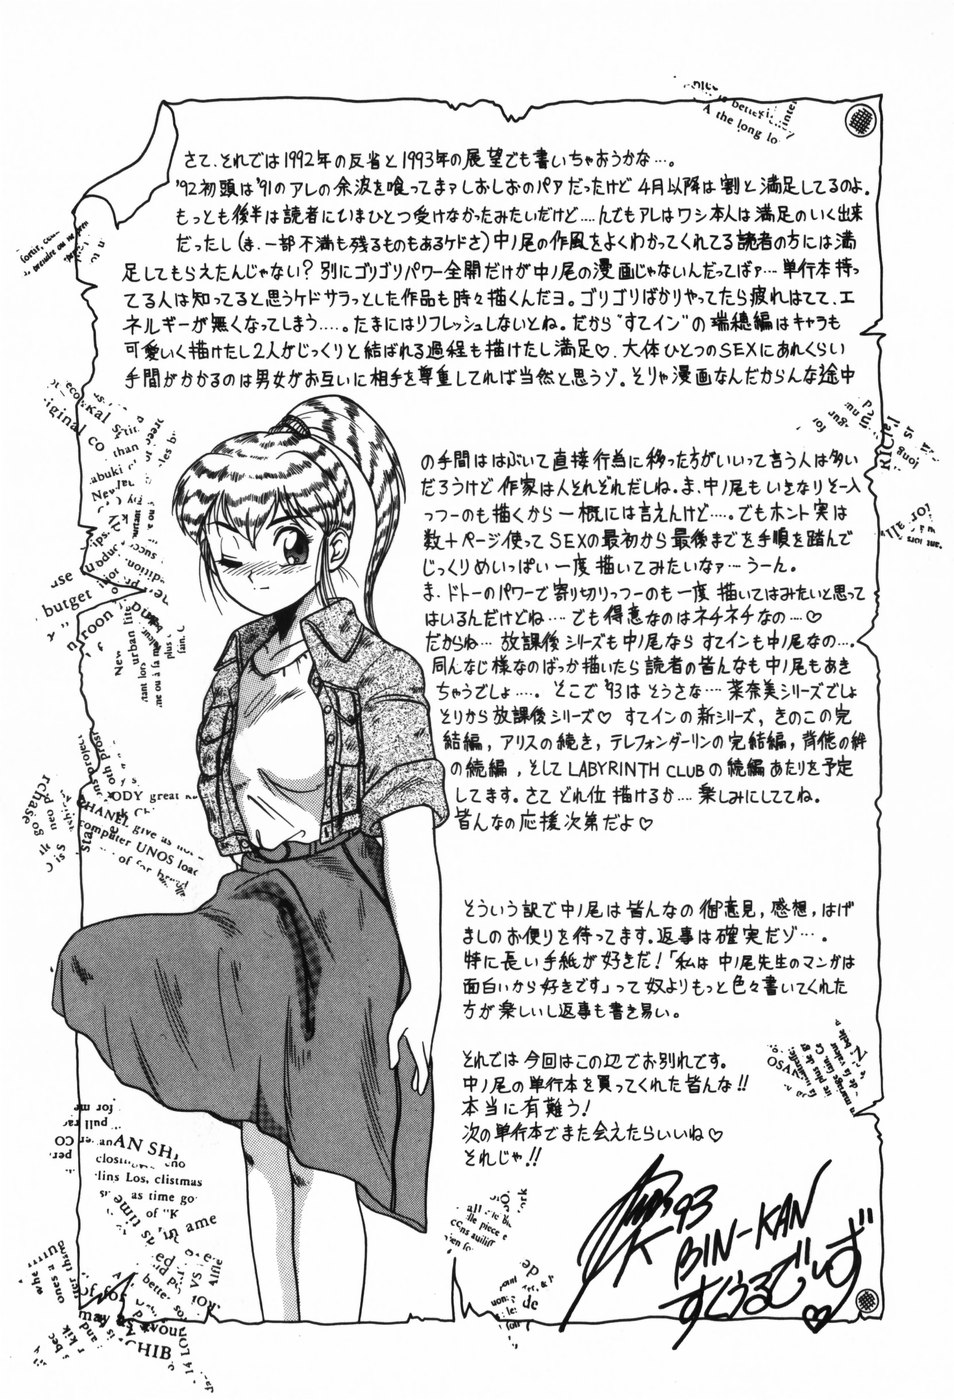 さて、それでは1992年の反省と1993年の展望でも書いちゃおうかな…。
'92初頭は'91のアレの余波を喰ってまァしおしおのパアだったけど4月以降は割と満足してるのよ。
もっとも後半は読者にいまひとつ受けなかったみたいだけど…‥んでもアレはワシ本人は満足のいく出来
だったし(ま、一部不満も残るものもあるケドさ)中ノ尾の作風をよくわかってくれてる読者の方には満
足してもらえたんじゃない?別にゴリゴリパワー全開だけが中ノ尾の漫画じゃないんだってばァ…単行本持っ
てる人は知ってると思うケドサラっとした作品も時々描くんだヨ。ゴリゴリばかりやってたら疲れはてて、エ
ネルギーが無くなってしまう…‥。たまにはリフレッシュしないとね。だから"すてイン"の瑞穂編はキャラも
可愛いく描けたし2人がじっくりと結ばれる過程も描けたし満足♡、大体ひとつのSEXにあれくらい
手間がかかるのは男女がお互いに相手を尊重してれば当然と思うゾ。そりゃ漫画なんだからんな途中
の手間ははぶいて直接行為に移った方がいいって言う人は多い
だろうけど作家は人それぞれだしね。ま、中ノ尾もいきなりそー入
っつーのも描くから一概には言えんけど…‥。でもホント実は
数十ページ使ってSEXの最初から最後までを手順を踏んで
じっくりめいっぱい一度描いてみたいなァ…うーん。
ま、ドトーのパワーで寄り切りっつーのも一度描いてはみたいと思って
はいるんだけどね…でも得意なのはネチネチなの…♡
だからね…放課後シリーズも中ノ尾ならすてインも中ノ尾なの…。
同んなじ様なのばっか描いたら読者の皆んなも中ノ尾もあき
ちゃうでしょ…‥。そこで'93はそうさな…菜奈美シリーズでしょ
そりから放課後シリーズ♡すてインの新シリーズ,きのこの完
結編,アリスの続き,テレフォンダーリンの完結編,背徳の絆
の続編,そしてLABYRINTH CLUBの続編あたりを予定
してます。さてどれ位描けるか…‥楽しみにしててね。
皆んなの応援次第だよ♡
そういう訳で中ノ尾は皆んなの御意見,感想,はげ
ましのお便りを待ってます。返事は確実だゾ…。
特に長い手紙が好きだ!「私は中ノ尾先生のマンガは
面白いから好きです」って奴よりもっと色々書いてくれた
方が楽しいし返事も書き易い。
それでは今回はこの辺でお別れです。
中ノ尾の単行本を買ってくれた皆んな!!
本当に有難う!
次の単行本でまた会えたらいいね♡
それじゃ!!
K '93
BIN-KAN
すくうるでいず♡
A the long lo
iginal co
than
butget
urban life
ODY great
CHANEL give as
computer UNOS load
AN SHI
lins Los, clistmas
as time go
of "K
may as your
CHIB
OSAK